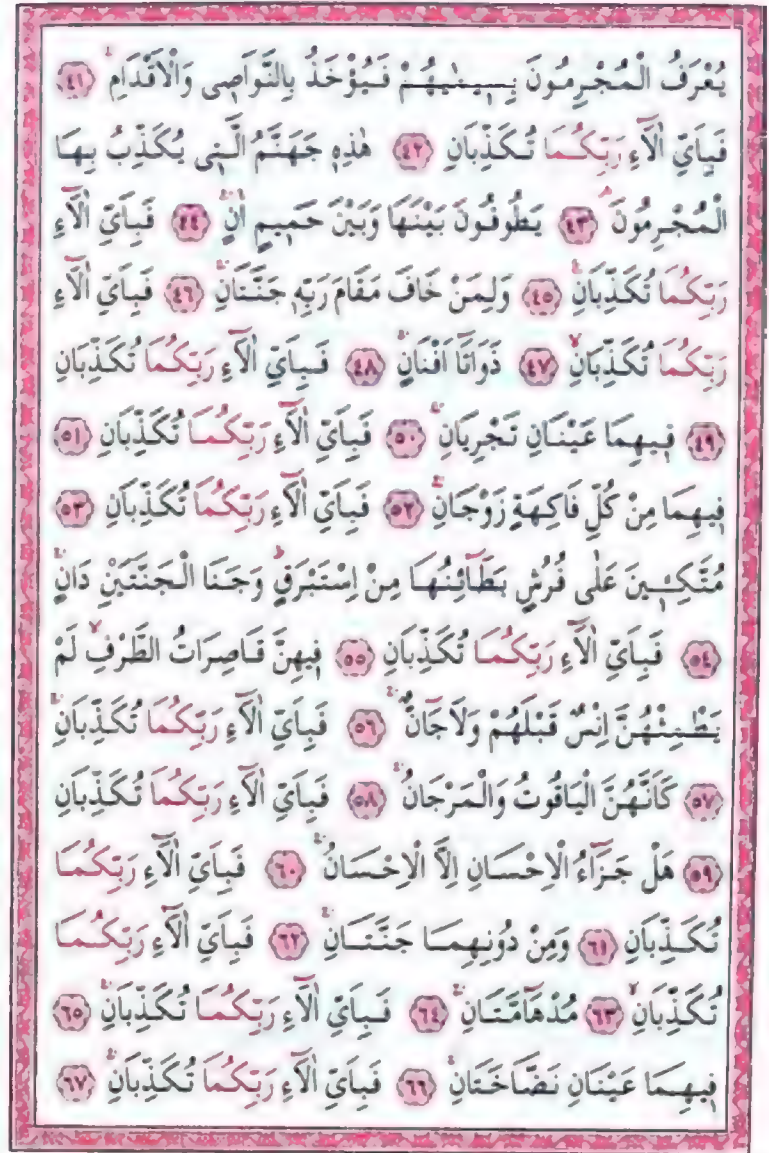 يُعْرَفُ الْمُجْرِمُونَ بِسِيمٰيهُمْ فَيُؤْخَذُ بِالنَّوَاصِى وَالْاَقْدَامِۚ ﴿٤١﴾
فَبِاَىِّ اٰلَٓاءِ رَبِّكُمَا تُكَذِّبَانِ ﴿٤٢﴾ هٰذِهِ جَهَنَّمُ الَّتِى يُكَذِّبُ بِهَا
الْمُجْرِمُونَۘ ﴿٤٣﴾ يَطُوفُونَ بَيْنَهَا وَبَيْنَ حَمِيمٍ اٰنٍۚ ﴿٤٤﴾ فَبِاَىِّ اٰلَٓاءِ
رَبِّكُمَا تُكَذِّبَانِ۟ ﴿٤٥﴾ وَلِمَنْ خَافَ مَقَامَ رَبِّهِ جَنَّتَانِۚ ﴿٤٦﴾ فَبِاَىِّ اٰلَٓاءِ
رَبِّكُمَا تُكَذِّبَانِۙ ﴿٤٧﴾ ذَوَاتَٓا اَفْنَانٍۚ ﴿٤٨﴾ فَبِاَىِّ اٰلَٓاءِ رَبِّكُمَا تُكَذِّبَانِ
﴿٤٩﴾ فِيهِمَا عَيْنَانِ تَجْرِيَانِۚ ﴿٥٠﴾ فَبِاَىِّ اٰلَٓاءِ رَبِّكُمَا تُكَذِّبَانِ ﴿٥١﴾
فِيهِمَا مِنْ كُلِّ فَاكِهَةٍ زَوْجَانِۚ ﴿٥٢﴾ فَبِاَىِّ اٰلَٓاءِ رَبِّكُمَا تُكَذِّبَانِ ﴿٥٣﴾
مُتَّكِـٔينَ عَلٰى فُرُشٍ بَطَٓائِنُهَا مِنْ اِسْتَبْرَقٍۜ وَجَنَا الْجَنَّتَيْنِ دَانٍۚ
﴿٥٤﴾ فَبِاَىِّ اٰلَٓاءِ رَبِّكُمَا تُكَذِّبَانِ ﴿٥٥﴾ فِيهِنَّ قَاصِرَاتُ الطَّرْفِۙ لَمْ
يَطْمِثْهُنَّ اِنْسٌ قَبْلَهُمْ وَلَا جَٓانٌّۚ ﴿٥٦﴾ فَبِاَىِّ اٰلَٓاءِ رَبِّكُمَا تُكَذِّبَانِۚ
﴿٥٧﴾ كَاَنَّهُنَّ الْيَاقُوتُ وَالْمَرْجَانُۚ ﴿٥٨﴾ فَبِاَىِّ اٰلَٓاءِ رَبِّكُمَا تُكَذِّبَانِ
﴿٥٩﴾ هَلْ جَزَٓاءُ الْاِحْسَانِ اِلَّا الْاِحْسَانُۚ ﴿٦٠﴾ فَبِاَىِّ اٰلَٓاءِ رَبِّكُمَا
تُكَذِّبَانِ ﴿٦١﴾ وَمِنْ دُونِهِمَا جَنَّتَانِۚ ﴿٦٢﴾ فَبِاَىِّ اٰلَٓاءِ رَبِّكُمَا
تُكَذِّبَانِۙ ﴿٦٣﴾ مُدْهَٓامَّتَانِۚ ﴿٦٤﴾ فَبِاَىِّ اٰلَٓاءِ رَبِّكُمَا تُكَذِّبَانِۚ ﴿٦٥﴾
فِيهِمَا عَيْنَانِ نَضَّاخَتَانِۚ ﴿٦٦﴾ فَبِاَىِّ اٰلَٓاءِ رَبِّكُمَا تُكَذِّبَانِۚ ﴿٦٧﴾